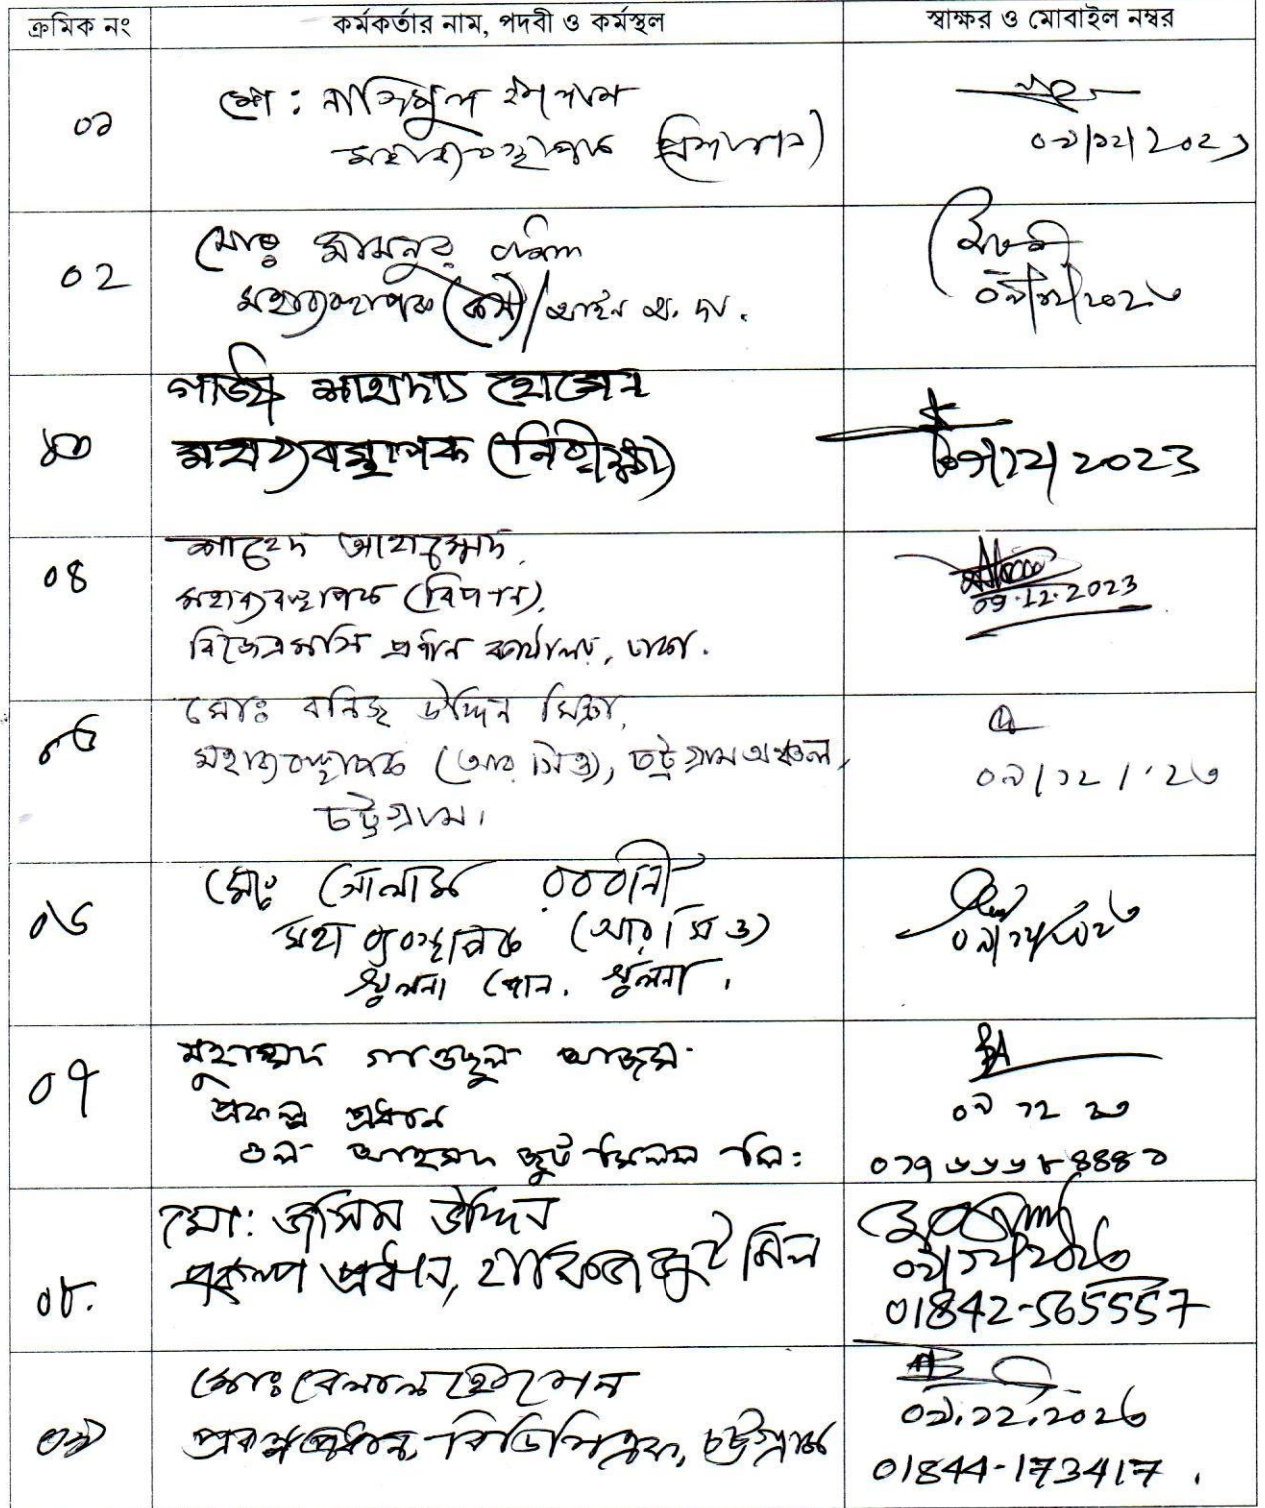 ক্রমিক নং	কর্মকর্তার নাম, পদবী ও কর্মস্থল	স্বাক্ষর ও মোবাইল নম্বর
০১	মো: নাজিমুল ইসলাম
মহাব্যবস্থাপক (প্রশাসন)
০৯/১২/২০২৩
০২	মোঃ মামনুর রশিদ
মহাব্যবস্থাপক
০৯/১২/২০২৩
০৩	গাজী শাহাদাত হোসেন
মহাব্যবস্থাপক (নিরীক্ষা)
০৯/১২/২০২৩
০৪	শাহেদ আহাম্মেদ,
মহাব্যবস্থাপক (বিপণন),
বিজেএমসি প্রধান কার্যালয়, ঢাকা.
09.12.2023
০৫	মোঃ উদ্দিন মিঞা,
মহাব্যবস্থাপক (আর সিও), চট্টগ্রাম অঞ্চল,
চট্টগ্রাম।
০৯/১২/'২৩
০৬	মোঃ গোলাম রব্বানী
মহা ব্যবস্থাপক (আর সি ও)
খুলনা জোন. খুলনা।
০৯/১২/২০২৩
০৭	মুহাম্মদ গাওছুল আজম
প্রকল্প প্রধান
গুল আহমদ জুট মিলস লি:
০৯ ১২ ২৩
০৮.	মো: জসিম উদ্দিন
প্রকল্প প্রধান, হাফিজ জুট মিল
০৯/১২/২০২৩
01842-565557
০৯	মোঃ বেলাল হোসেন
প্রকল্প প্রধান, বিডিসিএফ, চট্টগ্রাম
০৯.১২.২০২৩
01844-173417.